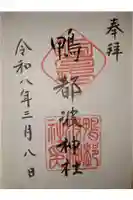 奉拝
鴨都波神社
令和八年三月八日